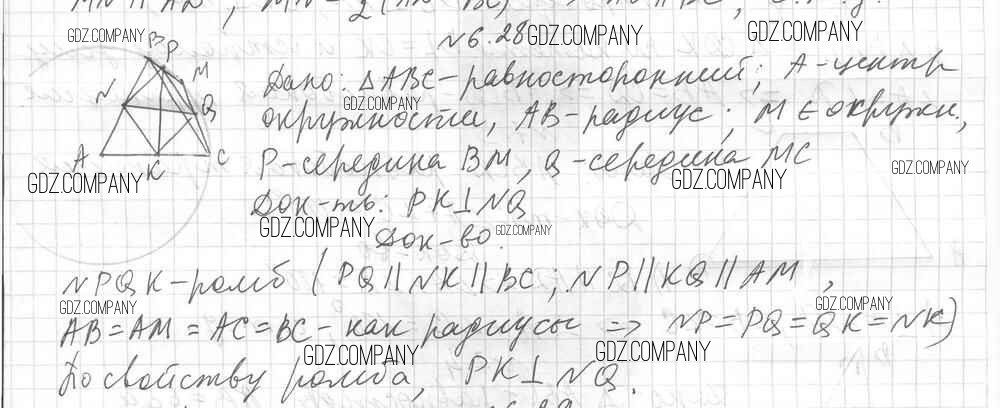 MN || AD, MN =
№ 6.28
Дано: △ABC - равносторонний; A - центр
окружности, AB - радиус; M ∈ окружн.,
P - середина BM, Q - середина MC
Док-ть: PK ⊥ NQ
Док-во.
NPQK - ромб (PQ || NK || BC; NP || KQ || AM,
AB = AM = AC = BC - как радиусы => NP = PQ = QK = NK)
По свойству ромба, PK ⊥ NQ.
B
P
M
N
Q
A
K
C
GDZ.COMPANY
GDZ.COMPANY
GDZ.COMPANY
GDZ.COMPANY
GDZ.COMPANY
GDZ.COMPANY
GDZ.COMPANY
GDZ.COMPANY
GDZ.COMPANY
GDZ.COMPANY
GDZ.COMPANY
GDZ.COMPANY
GDZ.COMPANY